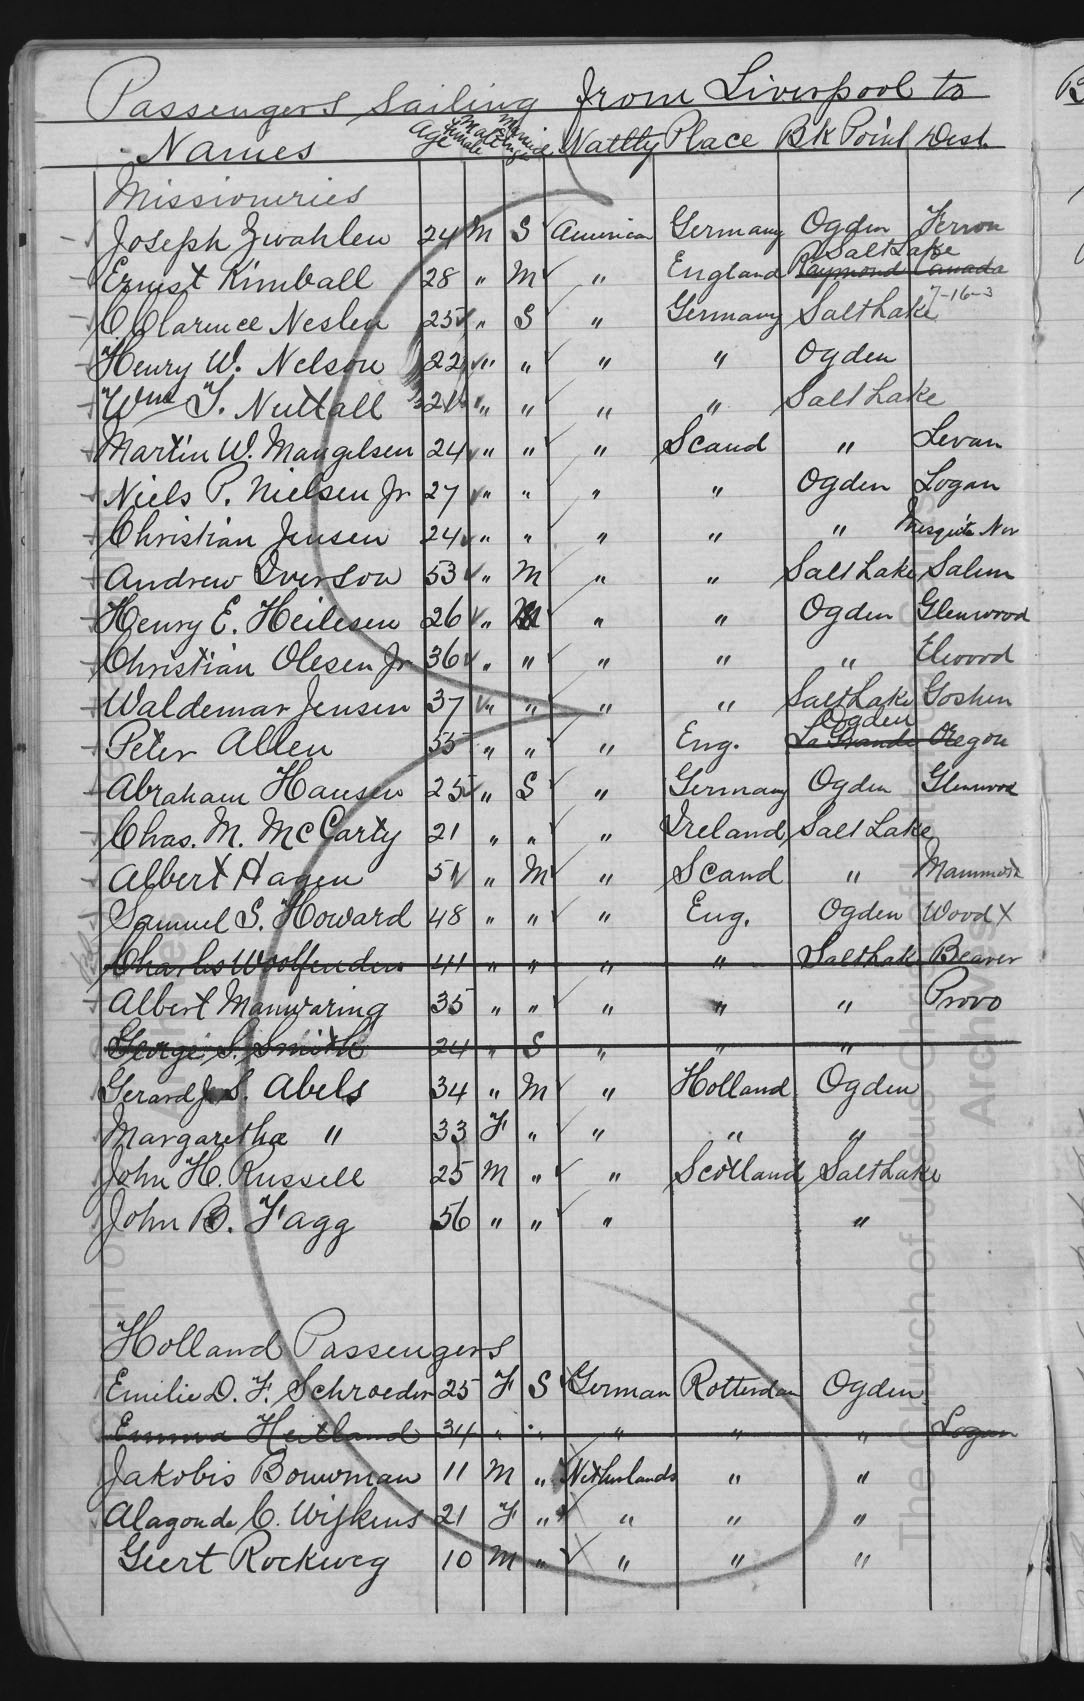 Passengers Sailing from Liverpool to
Names Age Male Female Natlty Place Bk Point Dest.
Missionieries
Joseph Zwahlen 24 M S American Germany Ogden Ferron
Ernest Kimball 28 " M " England Salt Lake Raymond Canada
C Clarence Neslen 25 " S " Germany Salt Lake 7-16-3
Henry W. Nelson 22 " " " " Ogden
Wm T. Nuttall 21 " " " " Salt Lake
Martin W. Mangelsen 24 " " " Scand " Levan
Niels P. Nielsen Jr 27 " " " " Ogden Logan
Christian Jensen 24 " " " " " Mesquite Nev
Andrew Iverson 53 " M " " Salt Lake Salem
Henry E. Heilesen 26 " M " " Ogden Glenwood
Christian Olesen Jr 36 " " " " " Elwood
Waldemar Jensen 37 " " " " Salt Lake Goshen
Peter Allen 55 " " " Eng. Ogden La Grande Oregon
Abraham Hansen 25 " S " Germany Ogden Glenwood
Chas. M. McCarty 21 " " " Ireland Salt Lake
Albert Hagen 51 " M " Scand " Mammoth
Samuel S. Howard 48 " " " Eng. Ogden Wood X
Charles Woolfenden 41 " " " " Salt Lak Beaver
Albert Manwaring 35 " " " " " Provo
George S. Smith 24 " S " " "
Gerard J S. Abels 34 " M " Holland Ogden
Margaretha " 33 F " " " "
John H. Russell 25 M " " Scotland Salt Lake
John B. Fagg 56 " " " "
Holland Passengers
Emilie D. F. Schroeder 25 F S German Rotterdam Ogden
Emma Heitland 34 " " " " " Logan
Jakobis Bouwman 11 M " Netherlands " "
Alagonde C. Wijkens 21 F " " " "
Geert Rockweg 10 M " " " "